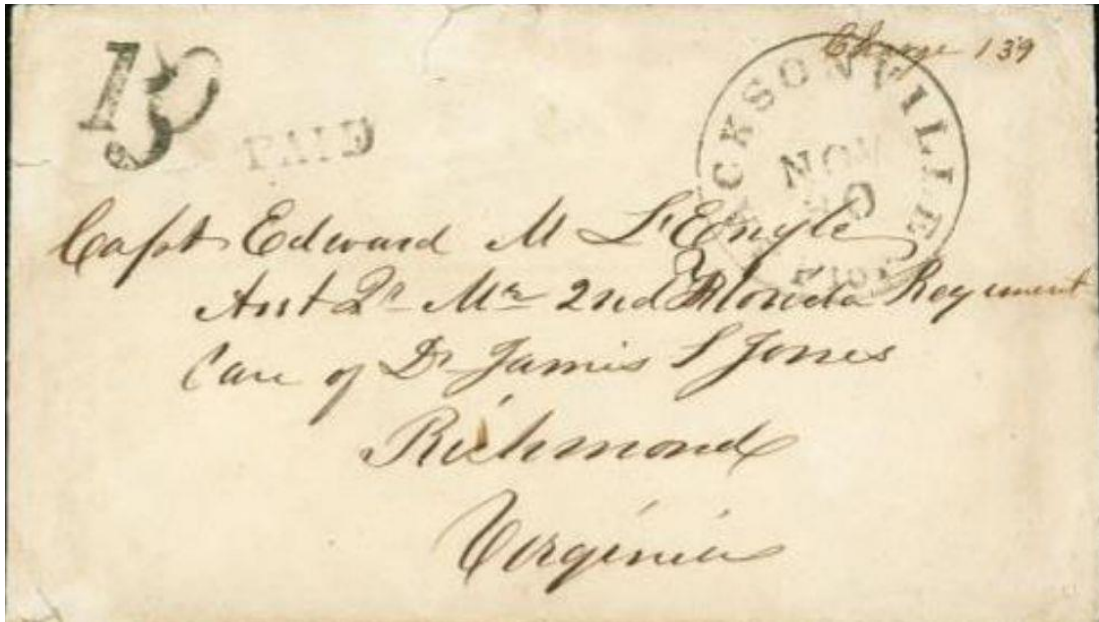 Charge 139
10
5
PAID
JACKSONVILLE
NOV
Capt Edward M L'Engle
Asst Qr Mr 2nd Florida Regiment
Care of Dr James S Jones
Richmond
Virginia